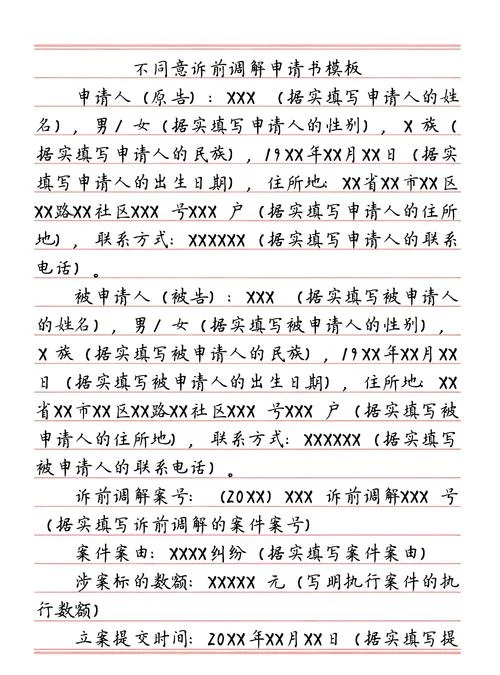 不同意诉前调解申请书模板
申请人（原告）：XXX （据实填写申请人的姓
名），男/女（据实填写申请人的性别），X族（
据实填写申请人的民族），19XX年XX月XX日（据实
填写申请人的出生日期），住所地：XX省XX市XX区
XX路XX社区XXX 号XXX 户（据实填写申请人的住所
地），联系方式：XXXXXX（据实填写申请人的联系
电话）。
被申请人（被告）：XXX （据实填写被申请人
的姓名），男/女（据实填写被申请人的性别），
X族（据实填写被申请人的民族），19XX年XX月XX
日（据实填写被申请人的出生日期），住所地：XX
省XX市XX区XX路XX社区XXX 号XXX 户（据实填写被
申请人的住所地），联系方式：XXXXXX（据实填写
被申请人的联系电话）。
诉前调解案号：（20XX）XXX 诉前调解XXX 号
（据实填写诉前调解的案件案号）
案件案由：XXXX纠纷（据实填写案件案由）
涉案标的数额：XXXXX 元（写明执行案件的执
行数额）
立案提交时间：20XX年XX月XX日（据实填写提